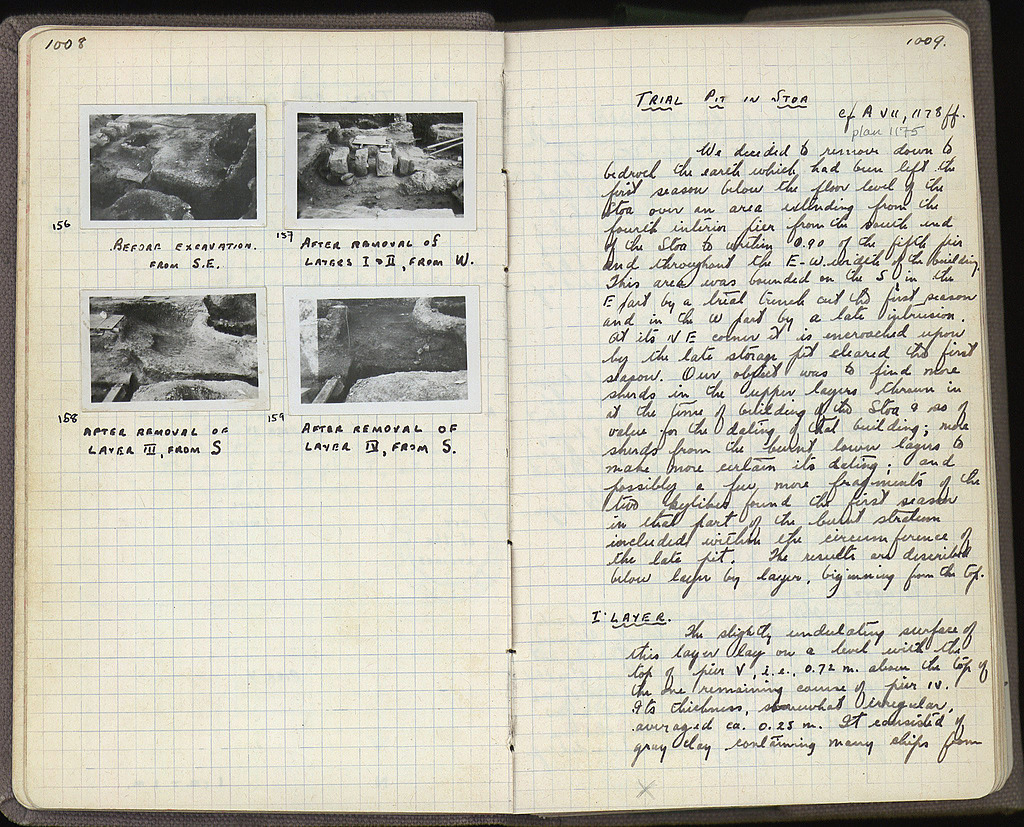 1008
156
BEFORE EXCAVATION.
FROM S.E.
157
AFTER REMOVAL OF
LAYERS I & II, FROM W.
158
AFTER REMOVAL OF
LAYER III, FROM S
159
AFTER REMOVAL OF
LAYER IV, FROM S.
1009.
TRIAL PIT IN STOA
cf A VII, 1178 ff.
plan 1175
We decided to remove down to
bedrock the earth which had been left the
first season below the floor level of the
Stoa over an area extending from the
fourth interior pier from the south end
of the Stoa to within 0.90 of the fifth pier
and throughout the E-W width of the building.
This area was bounded on the S, in the
E part by a trial trench cut the first season
and in the W part by a late intrusion.
At its NE corner it is encroached upon
by the late storage pit cleared the first
season. Our object was to find more
sherds in the upper layers thrown in
at the time of building of the Stoa & so of
value for the dating of that building; more
sherds from the burnt lower layers to
make more certain its dating; and
possibly a few more fragments of the
two kylikes found the first season
in that part of the burnt stratum
included within the circumference of
the late pit. The results are described
below layer by layer, beginning from the top.
I LAYER.
The slightly undulating surface of
this layer lay on a level with the
top of pier V, i.e., 0.72 m. above the top of
the one remaining course of pier IV.
Its thickness, somewhat irregular,
averaged ca. 0.25 m. It consisted of
gray clay containing many chips from